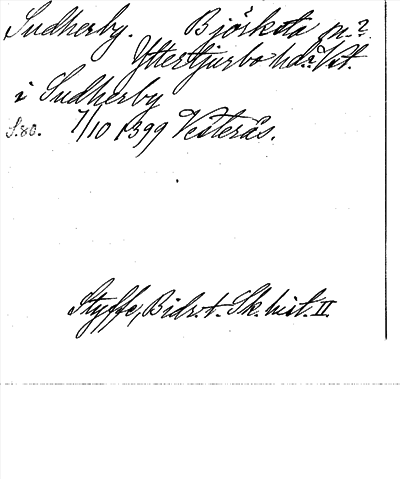 Sudherby. Björksta sn.?
Yttertjurbo hd? Vstm.
i Sudherby
S. 80. 7/10 1399 Vesterås.
Styffe, Bidr. t. Sk. hist. II.